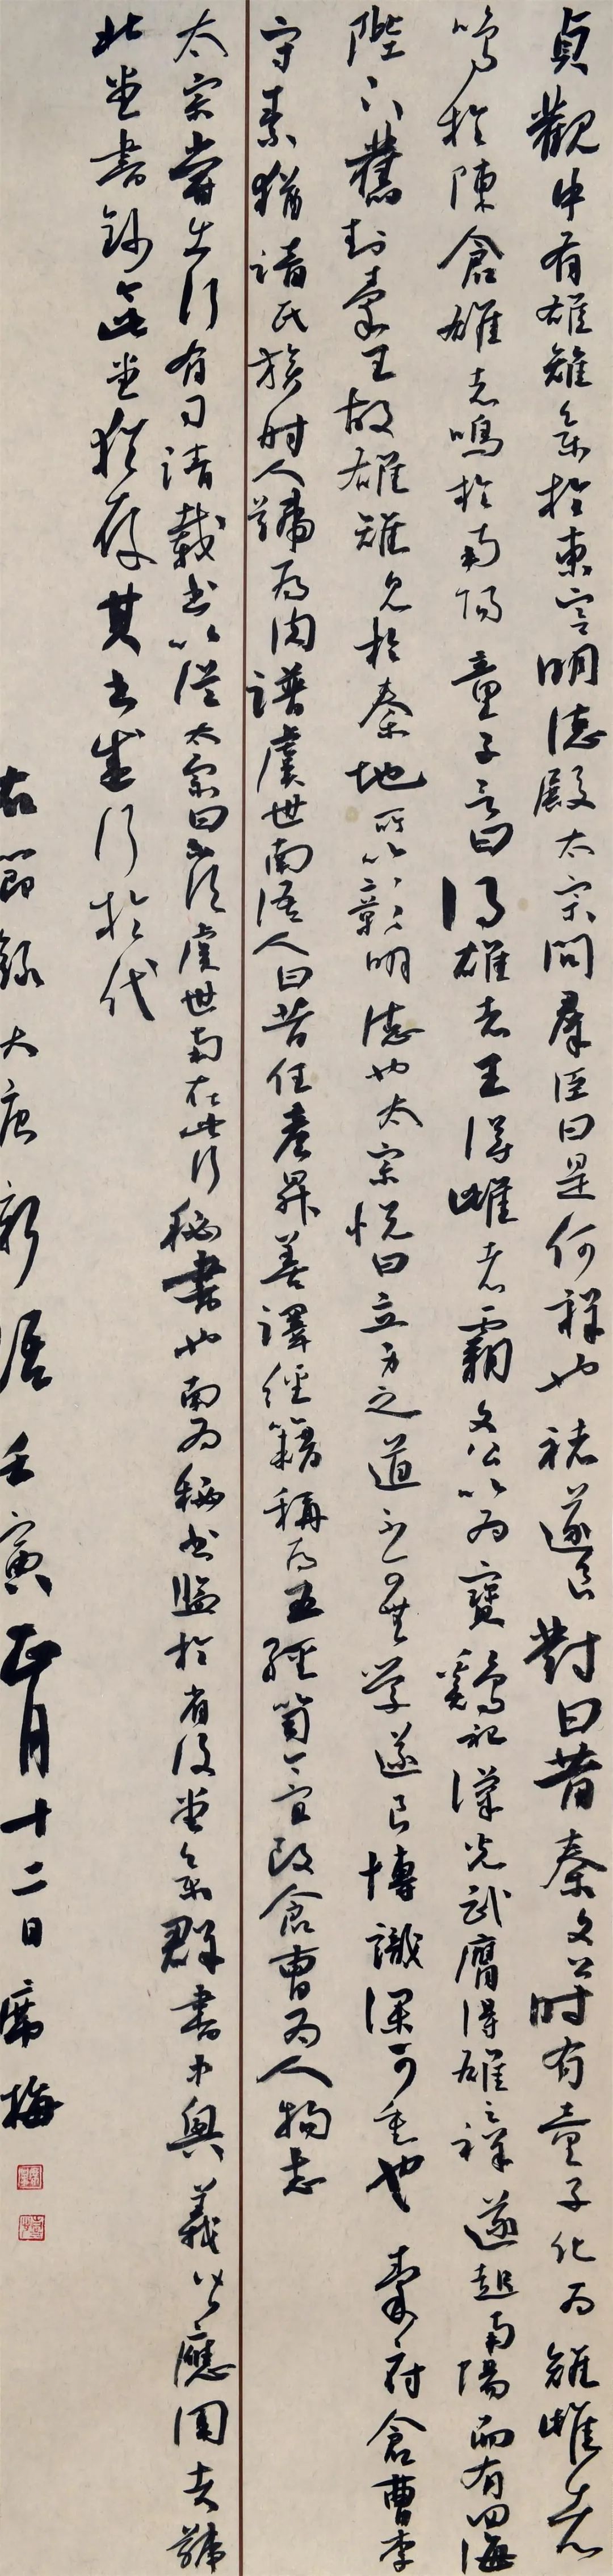 貞觀中有雄雉集於東宮明德殿太宗問羣臣曰是何祥也褚遂良對曰昔秦文公時有童子化為雉雌者
鳴於陳倉雄者鳴於南陽童子言曰得雄者王得雌者霸文公以為寶鷄祀漢光武膺得雄之祥遂起南陽而有四海
陛下舊封秦王故雄雉見於秦地所以彰明德也太宗悅曰立身之道不可無學遂良博識深可重也 秦府倉曹李
守素猶諳氏族時人號為肉譜虞世南語人曰昔任彥昇善譚經籍稱為五經笥今宜改倉曹為人物志
太宗嘗出行有司請載書以從太宗曰不須虞世南在此行秘書也南為秘書監於省後堂集群書中奧義皆應用者號
北堂書鈔今此堂猶存其書盛行於代
右節錄大唐新語壬寅正月十二日席梅